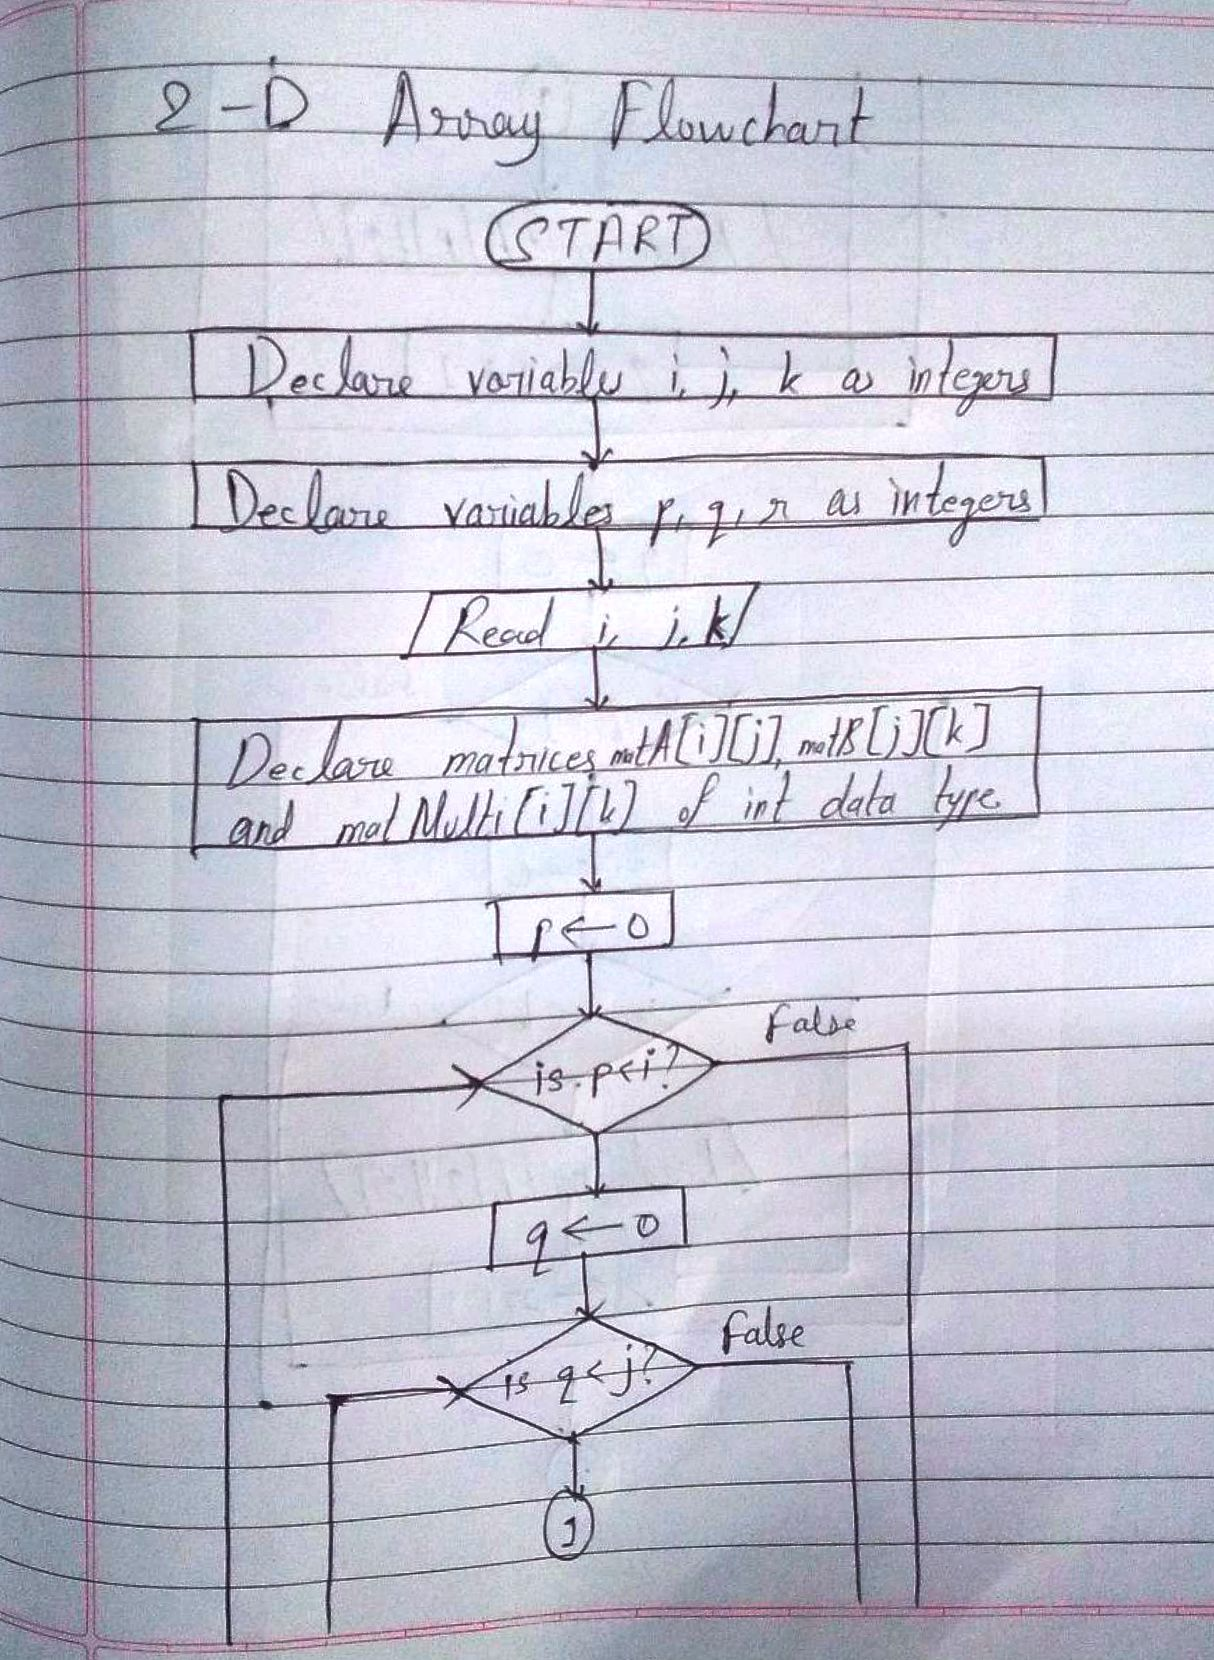 2-D Array Flowchart
START
Declare variables i, j, k as integers
Declare variables p, q, r as integers
Read i, j, k
Declare matrices matA[i][j], matB[j][k]
and matMulti[i][k] of int data type.
p ← 0
is p<i?
False
q ← 0
is q<j?
False
1